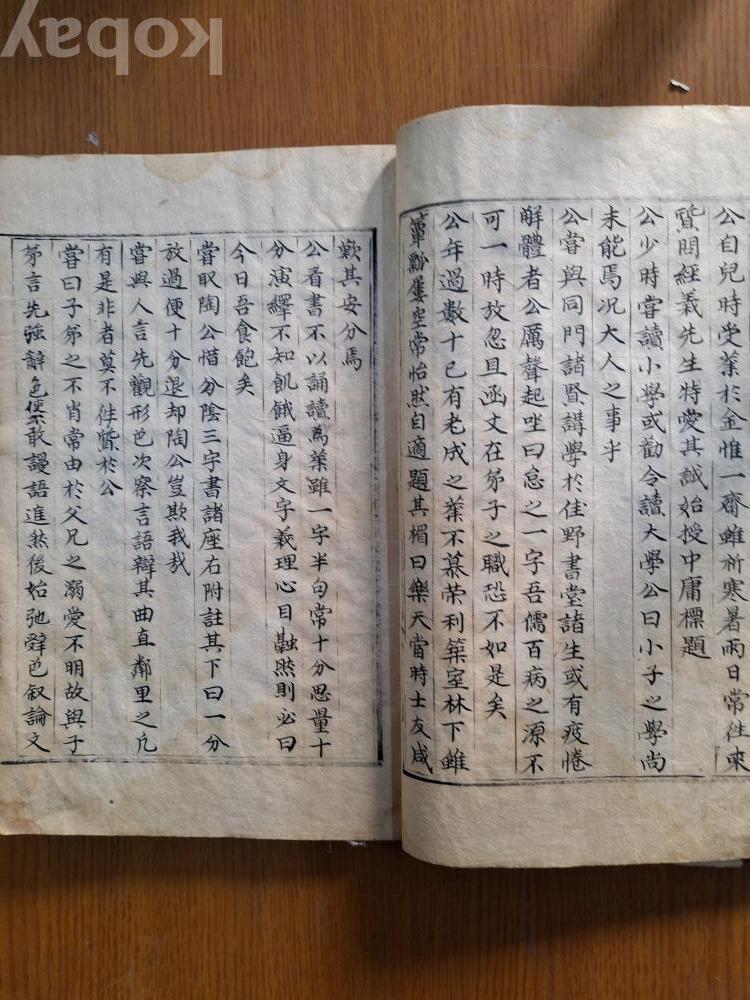 kobay
公自兒時受業於金惟一齋雖祈寒暑雨日常往來
質問經義先生特愛其誠始授中庸標題
公少時嘗讀小學或勸令讀大學公曰小子之學尚
未能焉况大人之事乎
公嘗與同門諸賢講學於佳野書堂諸生或有疲惓
解體者公厲聲起坐曰怠之一字吾儒百病之源不
可一時放忽且函文在苐子之職恐不如是矣
公年過數十已有老成之葉不慕荣利築室林下雖
簞瓢屢空常怡然自適題其楣曰樂天當時士友咸
歎其安分焉
公看書不以誦讀為葉雖一字半句常十分思量十
分演繹不知飢餓逼身文字義理心目融然則必曰
今日吾食飽矣
嘗取陶公惜分陰三字書諸座右附註其下曰一分
放過便十分退却陶公豈欺我哉
嘗與人言先觀形色次察言語辯其曲直鄰里之凡
有是非者莫不往質於公
嘗曰子苐之不肖常由於父兄之溺愛不明故與子
苐言先強辭色使不敢謾語進然後始弛聲色叙論文